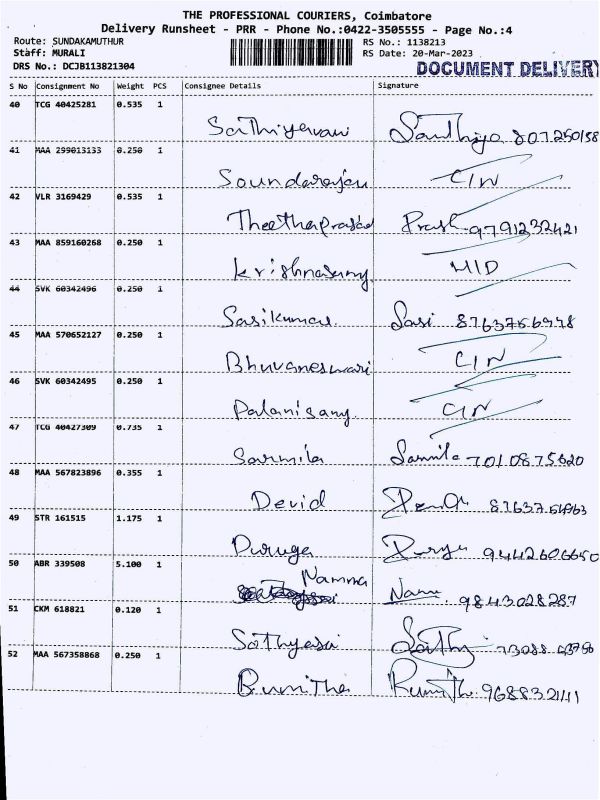 THE PROFESSIONAL COURIERS, Coimbatore
Delivery Runsheet - PRR - Phone No.:0422-3505555 - Page No.:4
Route: SUNDAKAMUTHUR
RS No.: 1138213
Staff: MURALI
RS Date: 20-Mar-2023
DRS No.: DCJB113821304
DOCUMENT DELIVERY
S No Consignment No Weight PCS Consignee Details Signature
40 TCG 40425281 0.535 1
Sathiyavani Santhiya
41 MAA 299013133 0.250 1
Soundarajan CIN
42 VLR 3169429 0.535 1
Theethaprasad Prash 9791232421
43 MAA 859160268 0.250 1
Krishnasamy HID
44 SVK 60342496 0.250 1
Sasikumar Sasi
45 MAA 570652127 0.250 1
Bhuvaneswari CIN
46 SVK 60342495 0.250 1
Palanisamy CIN
47 TCG 40427309 0.735 1
Sarmila Sarmila 7010875620
48 MAA 567823896 0.355 1
Devid
49 STR 161515 1.175 1
Duruga Durga 9442606650
50 ABR 339508 5.100 1
Namma Nam 9843028287
51 CKM 618821 0.120 1
Sathyasai Sathy
52 MAA 567358868 0.250 1
Bumitha Bumith 968832141